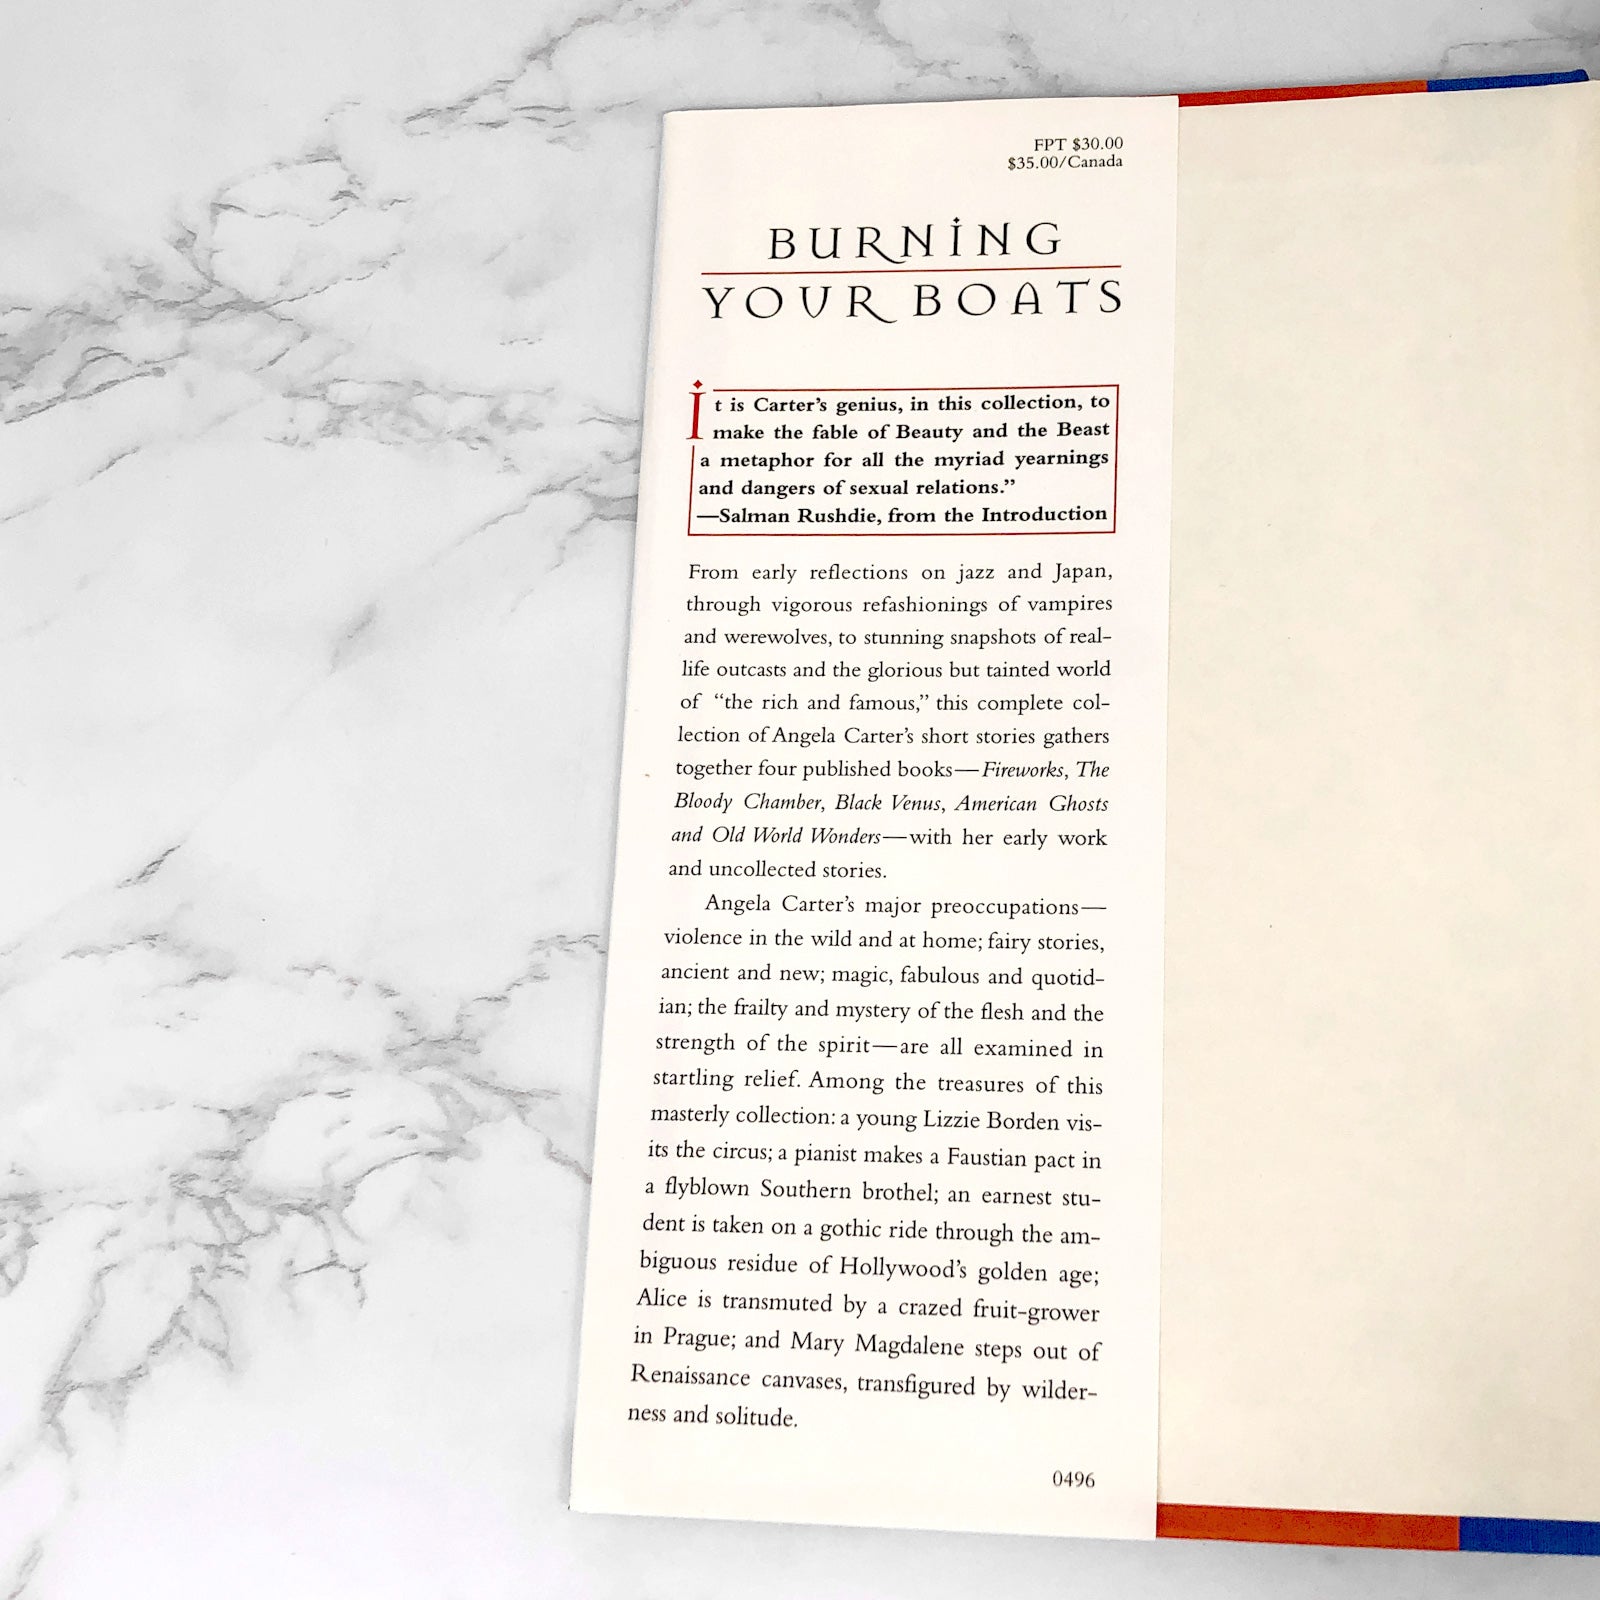 FPT $30.00
$35.00/Canada
BURNING
YOUR BOATS
It is Carter's genius, in this collection, to
make the fable of Beauty and the Beast
a metaphor for all the myriad yearnings
and dangers of sexual relations.”
—Salman Rushdie, from the Introduction
From early reflections on jazz and Japan,
through vigorous refashionings of vampires
and werewolves, to stunning snapshots of real-
life outcasts and the glorious but tainted world
of “the rich and famous,” this complete col-
lection of Angela Carter's short stories gathers
together four published books—Fireworks, The
Bloody Chamber, Black Venus, American Ghosts
and Old World Wonders—with her early work
and uncollected stories.
Angela Carter's major preoccupations—
violence in the wild and at home; fairy stories,
ancient and new; magic, fabulous and quotid-
ian; the frailty and mystery of the flesh and the
strength of the spirit—are all examined in
startling relief. Among the treasures of this
masterly collection: a young Lizzie Borden vis-
its the circus; a pianist makes a Faustian pact in
a flyblown Southern brothel; an earnest stu-
dent is taken on a gothic ride through the am-
biguous residue of Hollywood's golden age;
Alice is transmuted by a crazed fruit-grower
in Prague; and Mary Magdalene steps out of
Renaissance canvases, transfigured by wilder-
ness and solitude.
0496